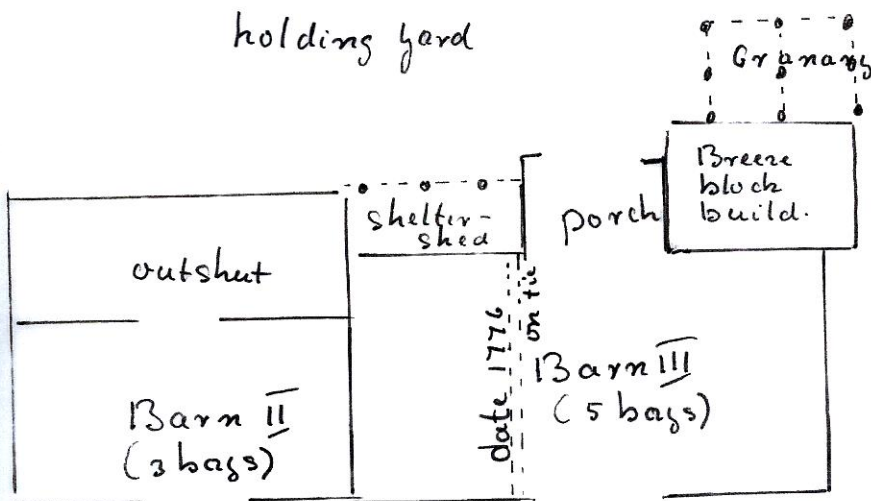 holding yard
Granary
Breeze
block
build.
shelter-
shed
porch
outshut
date 1776
on tie
Barn III
(5 bays)
Barn II
(3 bays)